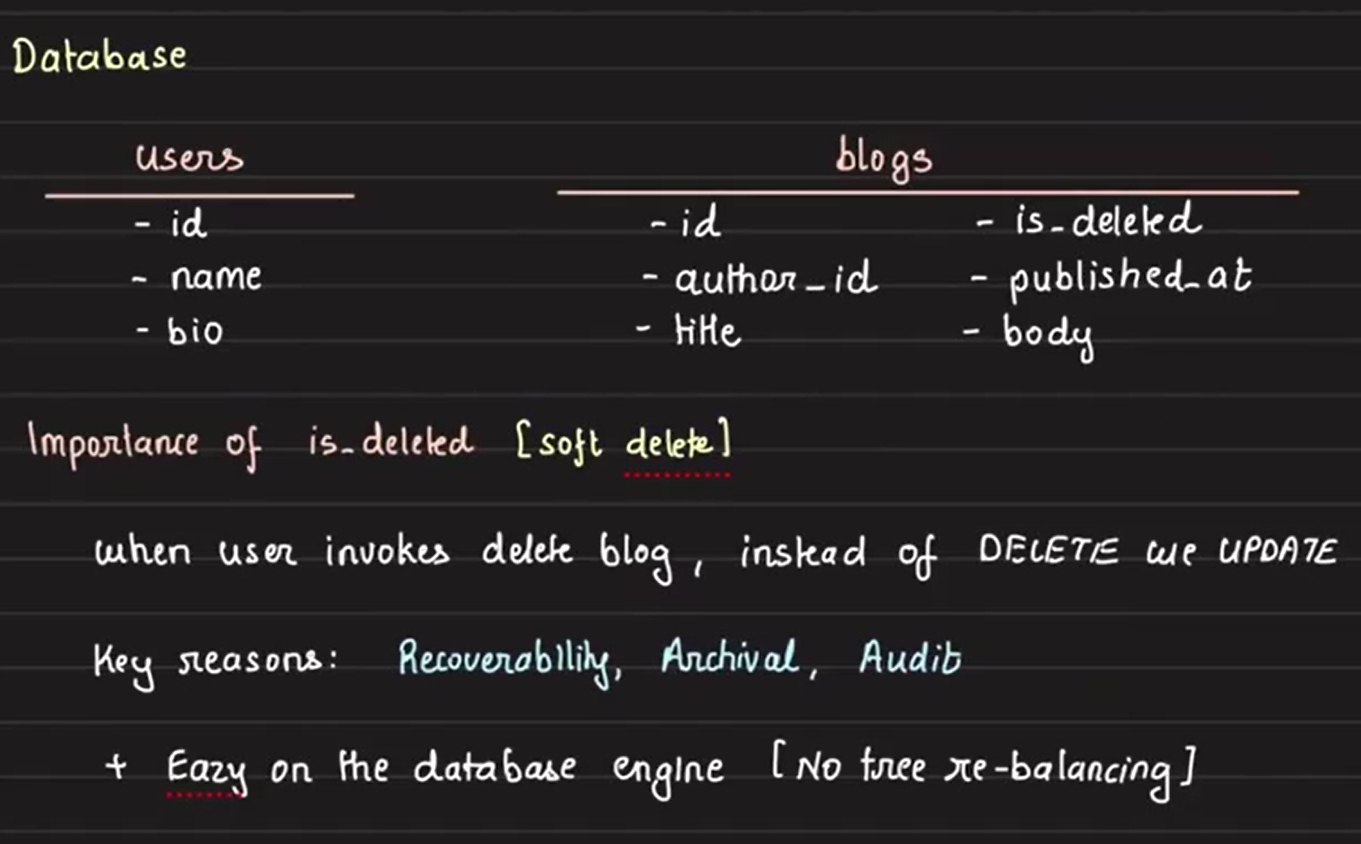 Database
users
blogs
- id
- name
- bio
- id
- author_id
- title
- is_deleted
- published_at
- body
Importance of is_deleted [soft delete]
when user invokes delete blog, instead of DELETE we UPDATE
Key reasons: Recoverability, Archival, Audit
+ Eazy on the database engine [No tree re-balancing]